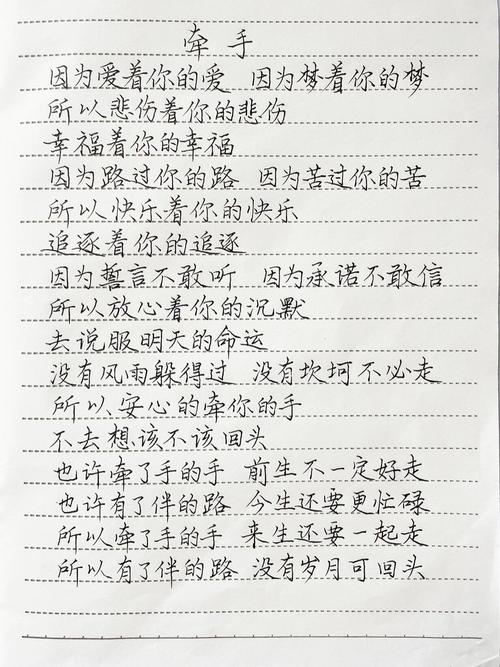 牵手
因为爱着你的爱 因为梦着你的梦
所以悲伤着你的悲伤
幸福着你的幸福
因为路过你的路 因为苦过你的苦
所以快乐着你的快乐
追逐着你的追逐
因为誓言不敢听 因为承诺不敢信
所以放心着你的沉默
去说服明天的命运
没有风雨躲得过 没有坎坷不必走
所以、安心的牵你的手
不去想该不该回头
也许牵了手的手 前生不一定好走
也许有了伴的路 今生还要更忙碌
所以牵了手的手 来生还要一起走
所以有了伴的路 没有岁月可回头